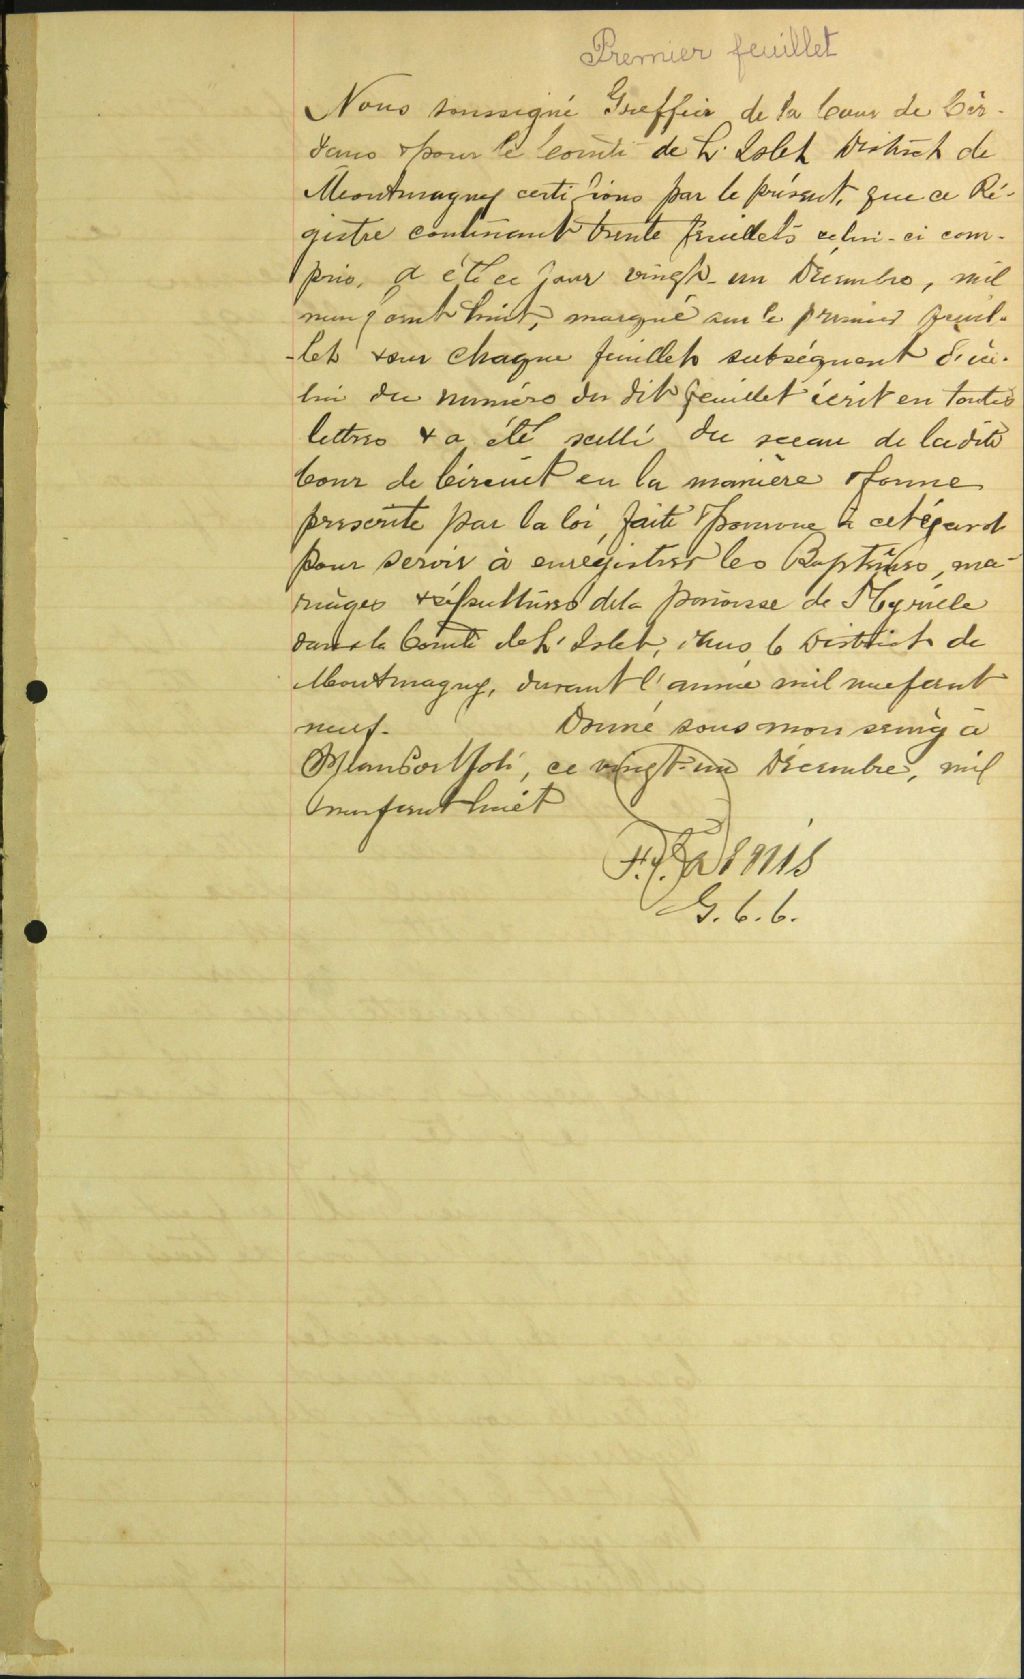 Premier feuillet
Nous soussigné Greffier de la Cour de Cir-
dans & pour le Comté de L'Islet District de
Montmagny certifions par le présent, que ce Ré-
gistre contenant trente feuillets celui-ci com-
pris, a été ce jour vingt-un Décembre, mil
neuf cent huit, marqué sur le premier feuil-
-let & sur chaque feuillet subséquent d'ice-
lui du numéro du dit feuillet écrit en toutes
lettres & a été scellé du sceau de la dite
Cour de Circuit en la manière & forme
prescrite par la loi, faite & pourvue à cet égard
pour servir à enrégistrer les Baptêmes, ma-
riages & sépultures de la paroisse de St Cyrille
dans le Comté de L'Islet, dans le District de
Montmagny, durant l'année mil neuf cent
neuf. Donné sous mon seing à
St Jean Port Joli, ce vingt-un Décembre, mil
neuf cent huit
G. C. C.